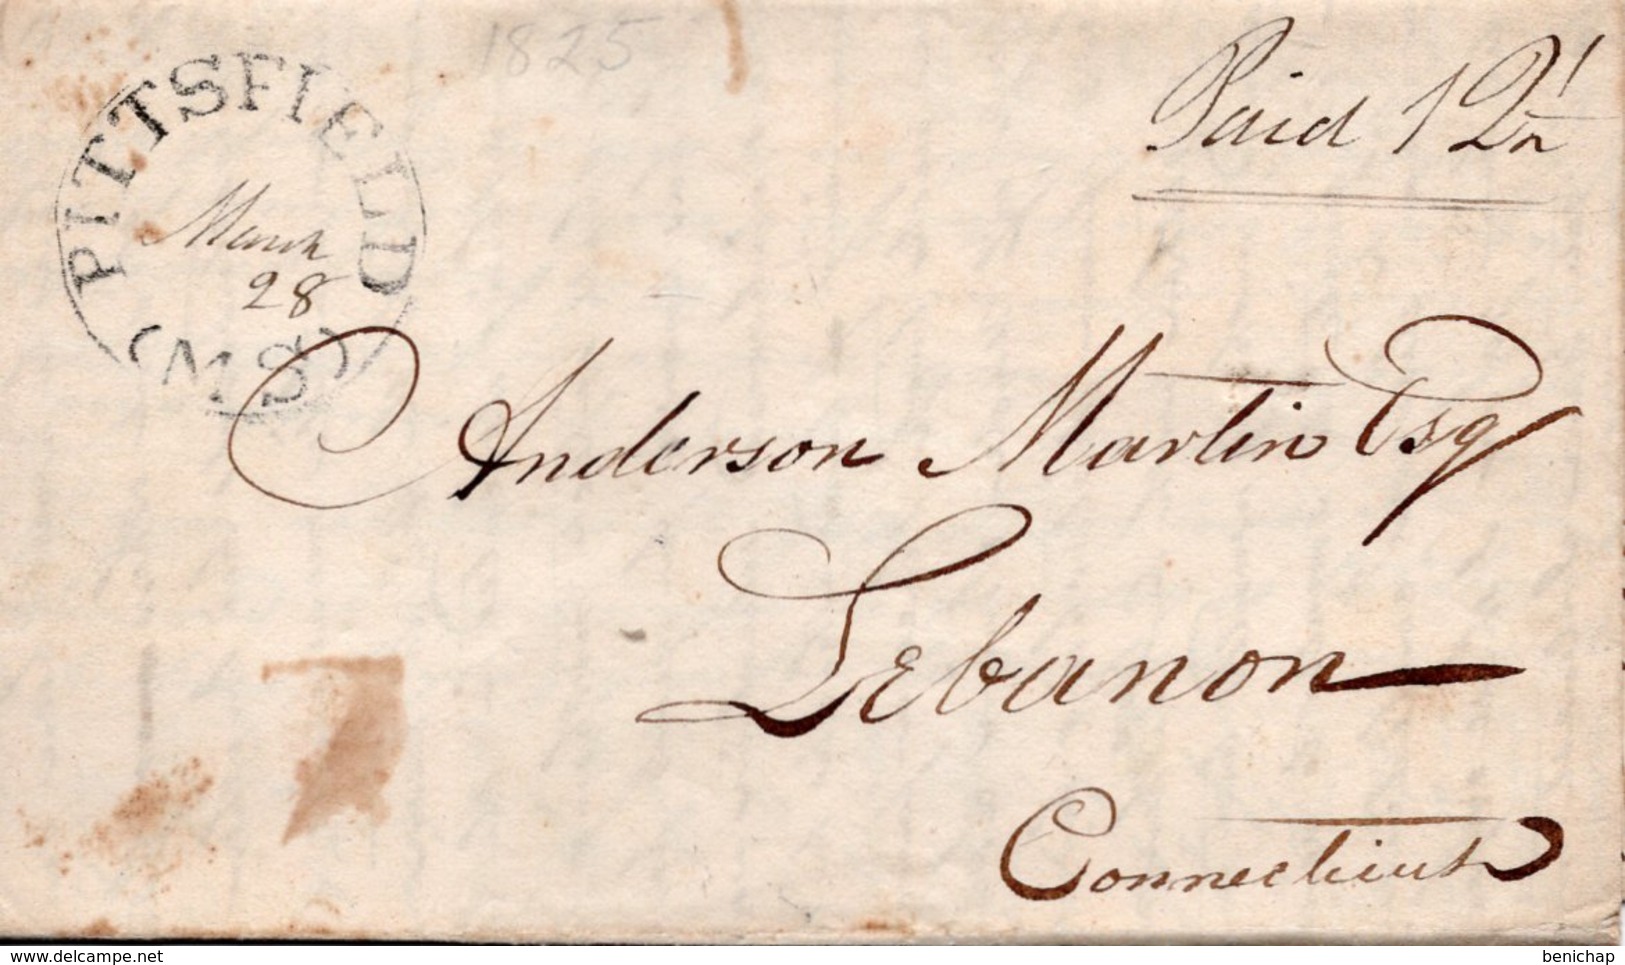 1825
Paid 12 1/2
PITTSFIELD
March
28
(MS)
Anderson Martin Esq
Lebanon
Connecticut
delcampe.net
benichap